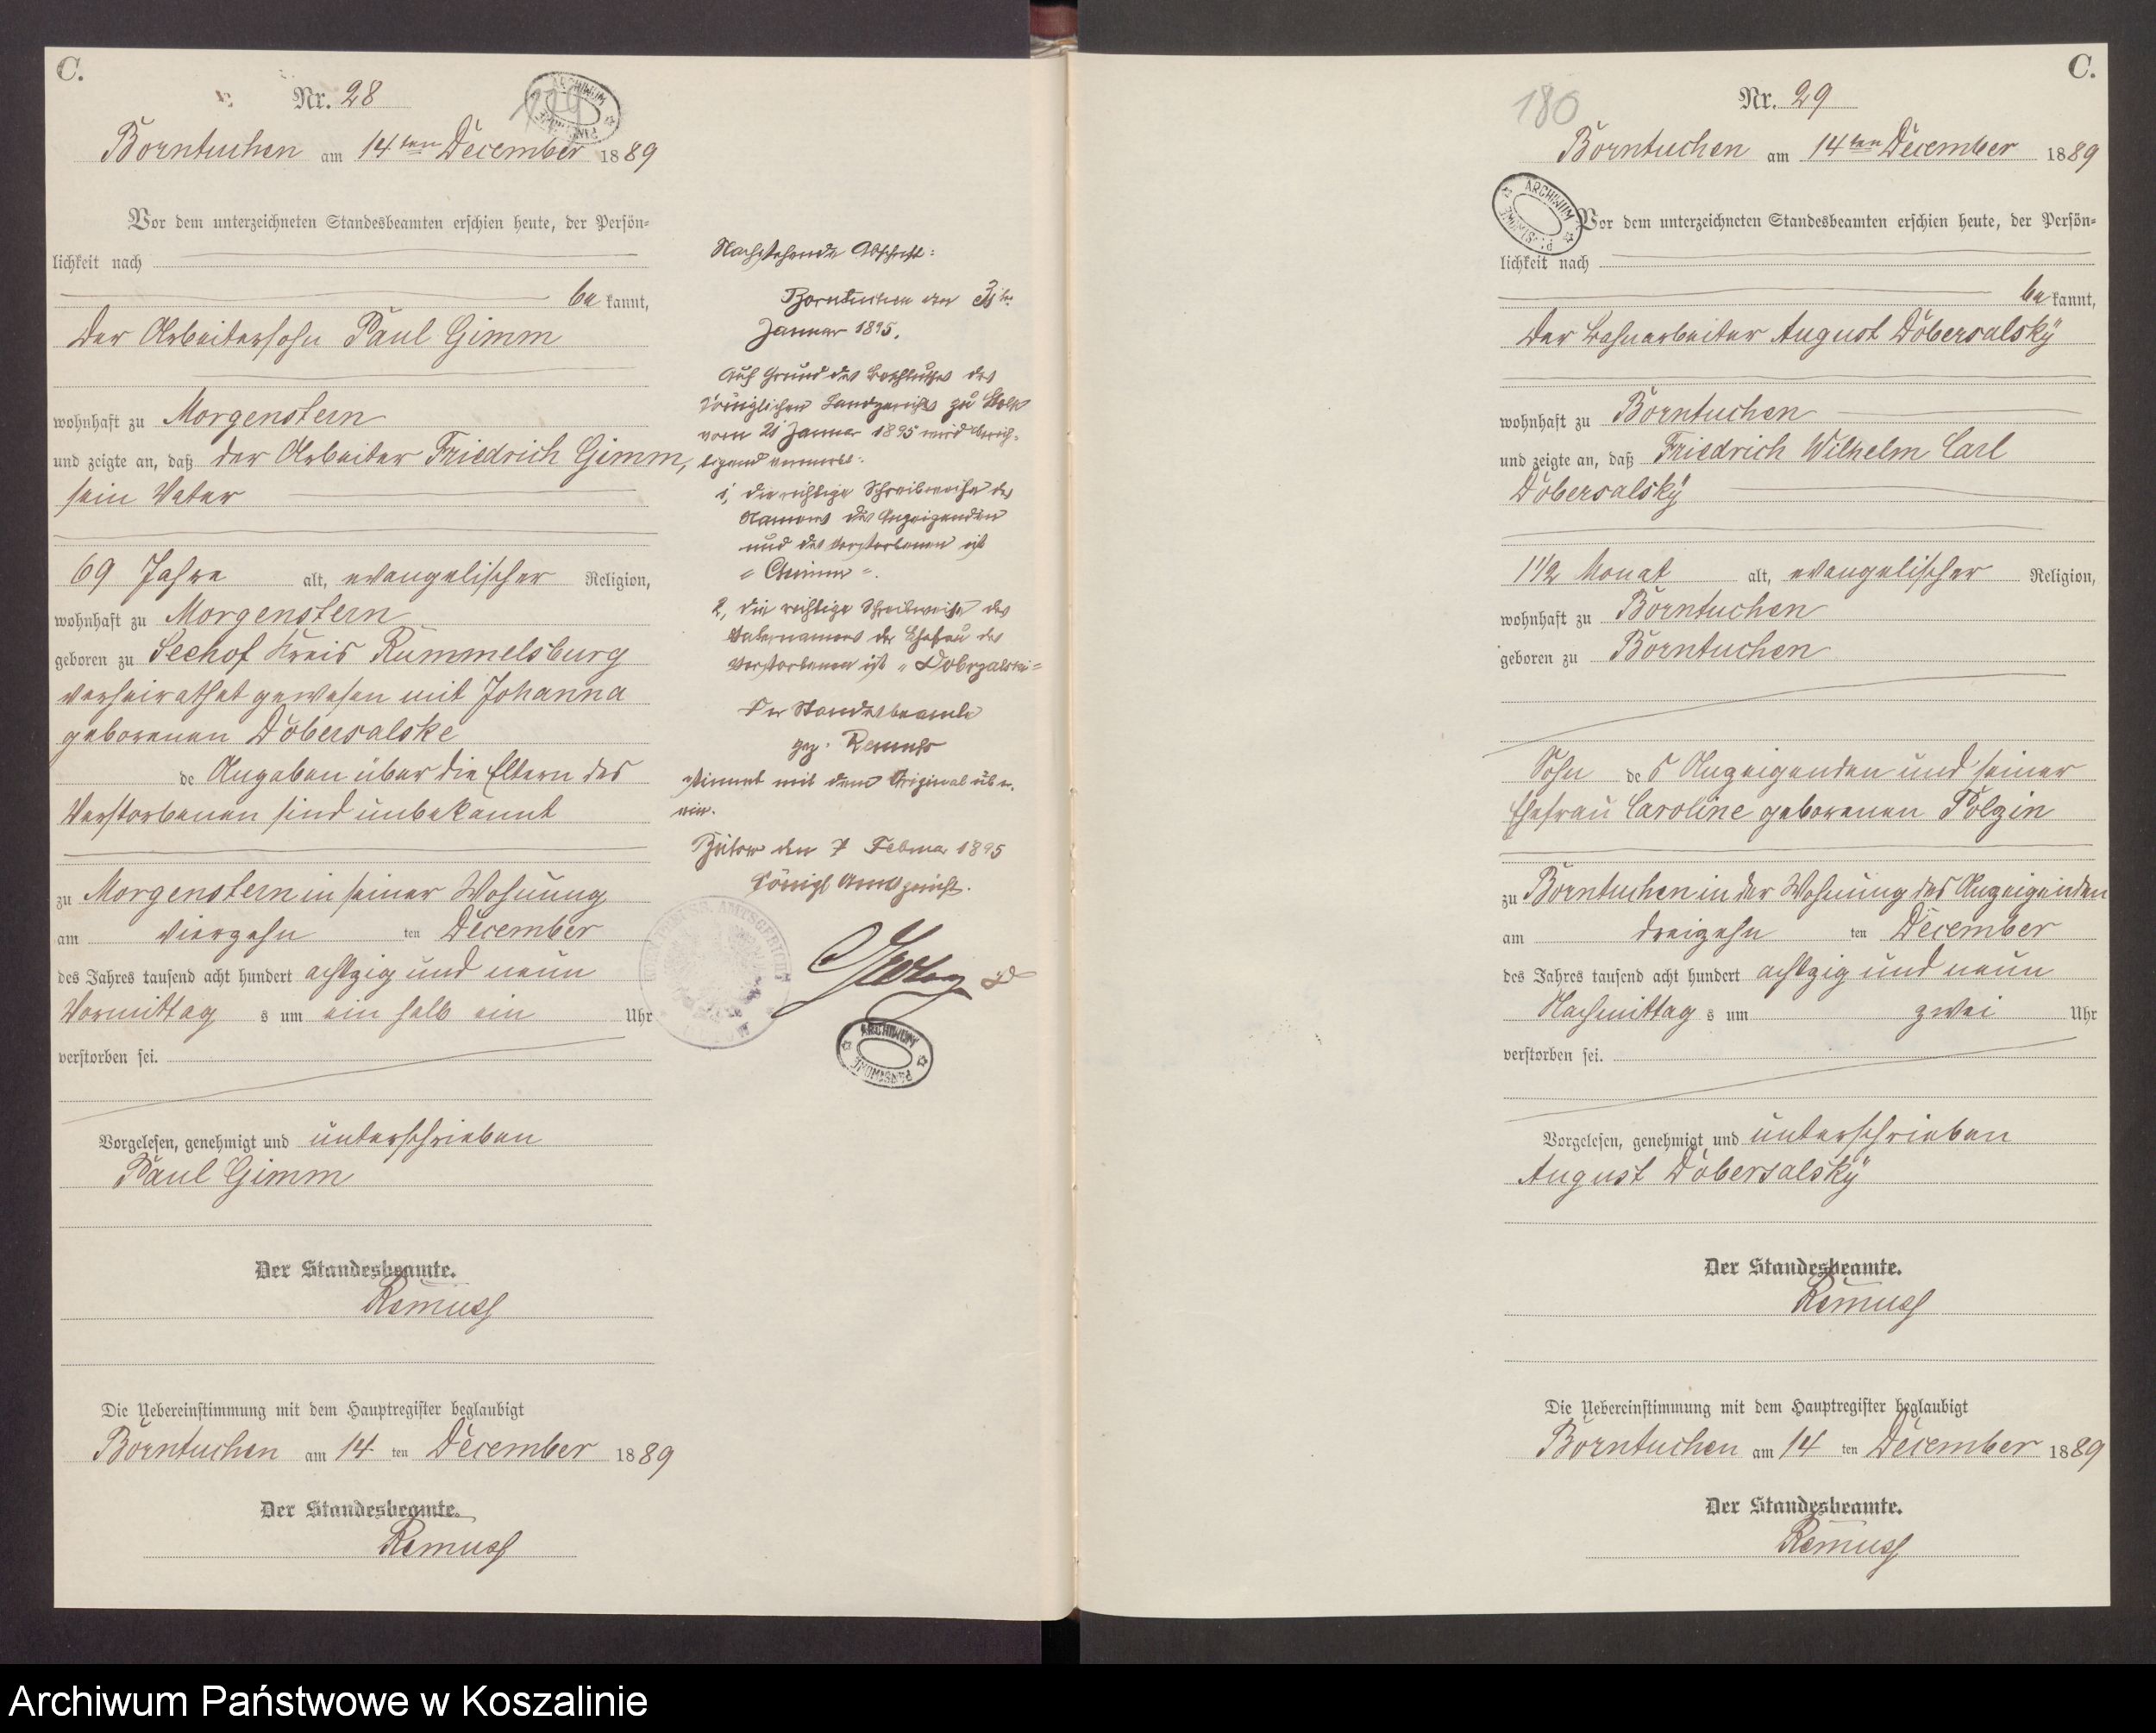 C.
Nr. 28
Borntuchen am 14ten December 1889
Vor dem unterzeichneten Standesbeamten erschien heute, der Persön-
lichkeit nach
be kannt,
der Arbeitersohn Paul Gimm
wohnhaft zu Morgenstern
und zeigte an, daß der Arbeiter Friedrich Gimm,
sein Vater
69 Jahre alt, evangelischer Religion,
wohnhaft zu Morgenstern
geboren zu Seehof Kreis Rummelsburg
verheirathet gewesen mit Johanna
geborenen Dobersalske
de Angaben über die Eltern des
Verstorbenen sind unbekannt
zu Morgenstern in seiner Wohnung
am vierzehn ten December
des Jahres tausend acht hundert achtzig und neun
Vormittag s um ein halb ein Uhr
verstorben sei.
Vorgelesen, genehmigt und unterschrieben
Paul Gimm
Der Standesbeamte.
Remuss
Die Uebereinstimmung mit dem Hauptregister beglaubigt
Borntuchen am 14 ten December 1889
Der Standesbeamte.
Remuss
Nachstehende Abschrift:
Borntuchen den
Januar 1895.
Auf Grund des Beschlusses des
Königlichen Landgerichts zu Stolp
vom 21 Januar 1895 wird berich-
tigend vermerkt:
1, die richtige Schreibweise des
Namens des Anzeigenden
und des Verstorbenen ist
2, die richtige Schreibweise des
Vaternamens der Ehefrau des
Verstorbenen ist "Dobrzalski"
Der Standesbeamte
gez. Remuss
stimmt mit dem Original über-
ein.
Bütow den 7 Februar 1895
Königl Amtsgericht.
ARCHIWUM
C.
180
Nr. 29
Borntuchen am 14ten December 1889
ARCHIWUM
Vor dem unterzeichneten Standesbeamten erschien heute, der Persön-
lichkeit nach
be kannt,
der Bahnarbeiter August Dobersalsky
wohnhaft zu Borntuchen
und zeigte an, daß Friedrich Wilhelm Carl
Dobersalsky
1 1/2 Monat alt, evangelischer Religion,
wohnhaft zu Borntuchen
geboren zu Borntuchen
Sohn de s Anzeigenden und seiner
Ehefrau Caroline geborenen Polzin
zu Borntuchen in der Wohnung des Anzeigenden
am dreizehn ten December
des Jahres tausend acht hundert achtzig und neun
Nachmittag s um zwei Uhr
verstorben sei.
Vorgelesen, genehmigt und unterschrieben
August Dobersalsky
Der Standesbeamte.
Remuss
Die Uebereinstimmung mit dem Hauptregister beglaubigt
Borntuchen am 14 ten December 1889
Der Standesbeamte.
Remuss
Archiwum Państwowe w Koszalinie